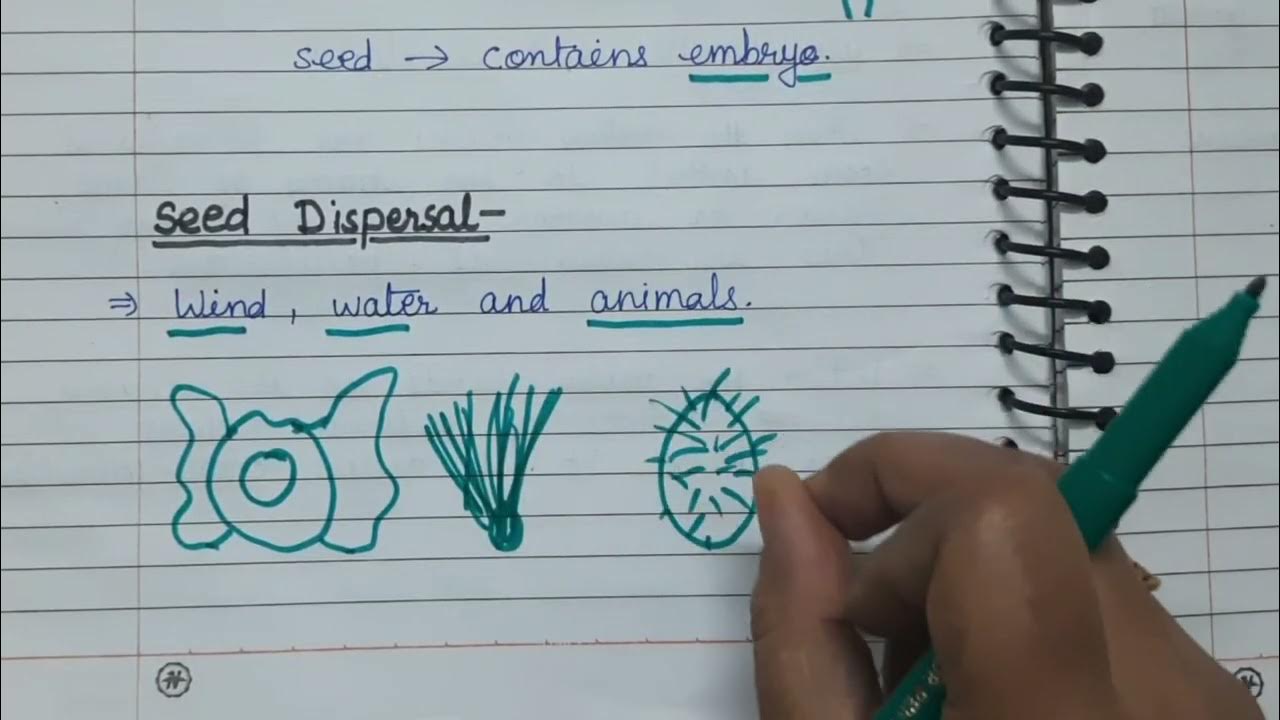 seed → contains embryo.
Seed Dispersal-
⇒ Wind, water and animals.